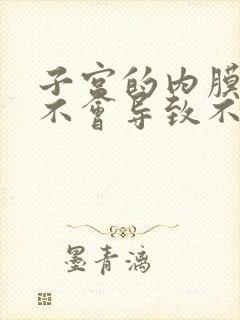 子宫的内膜
不會导致不
墨青漓